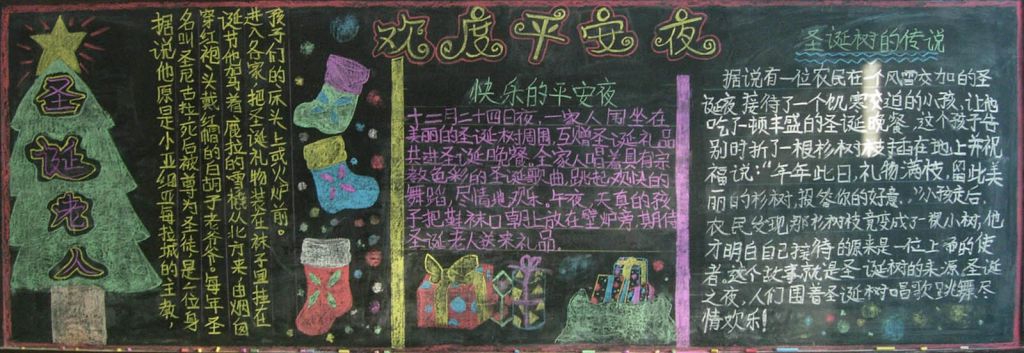 欢度平安夜
圣诞老人
据说他原是小亚细亚每拉城的主教，
名叫圣尼古拉，死后被尊为圣徒，是一位身
穿红袍、头戴红帽的白胡子老爷爷。每年圣
诞节他驾着鹿拉的雪橇从北方来，由烟囱
进入各家，把圣诞礼物装在袜子里挂在
孩子们的床头上或火炉前。
快乐的平安夜
十二月二十四日夜，一家人围坐在
美丽的圣诞树周围，互赠圣诞礼品
共进圣诞晚餐，全家人唱着具有宗
教色彩的圣诞歌曲，跳起欢快的
舞蹈，尽情地欢乐。午夜，天真的孩
子把鞋袜口朝上放在壁炉旁期待
圣诞老人送来礼品。
圣诞树的传说
据说有一位农民在一个风雪交加的圣
诞夜接待了一个饥寒交迫的小孩，让他
吃了一顿丰盛的圣诞晚餐，这个孩子告
别时折了一根杉树枝插在地上并祝
福说：“年年此日，礼物满枝，留此美
丽的杉树，报答你的好意。”小孩走后，
农民发现那杉树枝竟变成了一棵小树，他
才明白自己接待的原来是一位上帝的使
者。这个故事就是圣诞树的来源。圣诞
之夜，人们围着圣诞树唱歌跳舞尽
情欢乐！